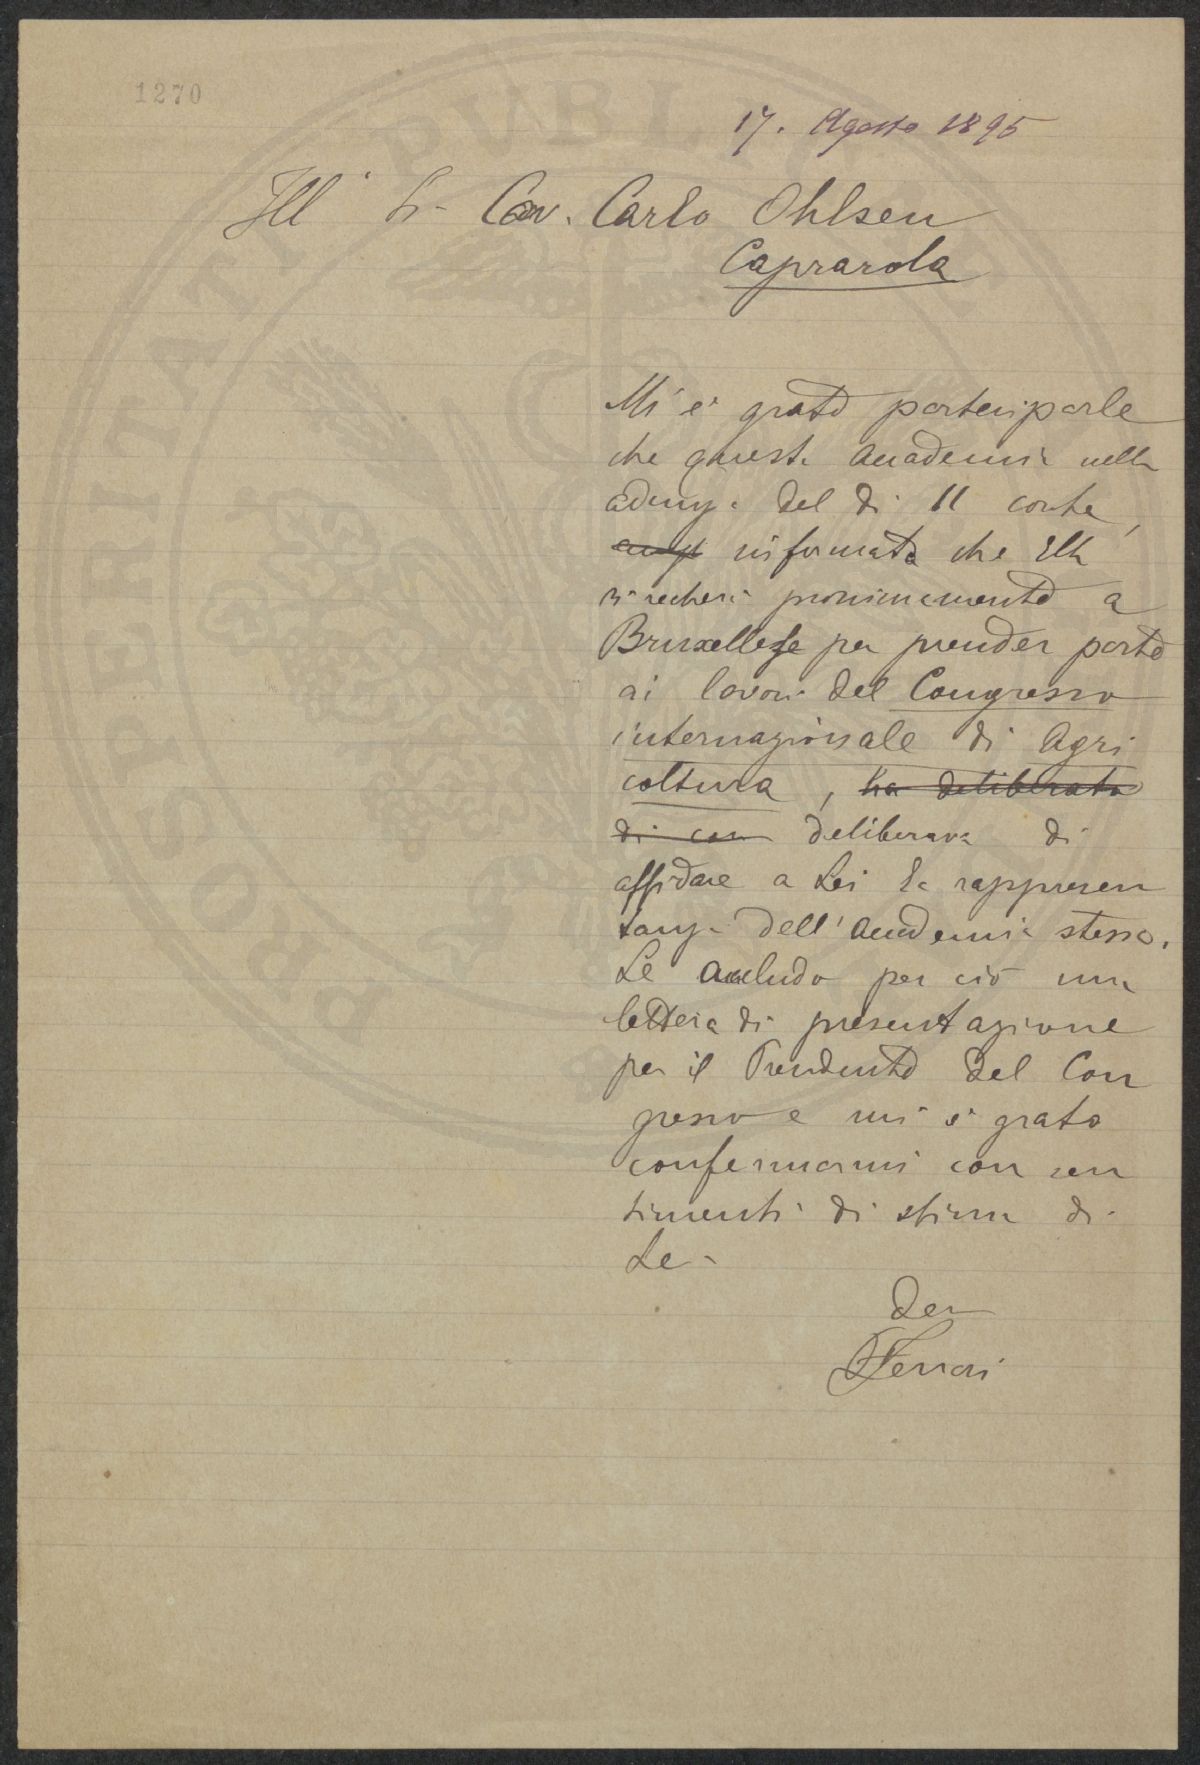 1270
17. Agosto 1895
Ill. Sr. Cav. Carlo Ohlsen
Caprarola
Mi è grato parteciparle
che questa Accademia nella
adunza del dì 11 corrte,
informata che Ella
si recherà prossimamente a
Bruxelles per prender parte
ai lavori del Congresso
internazionale di Agri
coltura, ha deliberato
di con deliberava di
affidare a Lei la rappresen
tanza dell'Accademia stessa.
Le accludo per ciò una
lettera di presentazione
per il Presidente del Con
gresso e mi è grato
confermarmi con sen
timenti di stima di
Lei
Dev
Ferrari
PROSPERITATI PUBLICAE